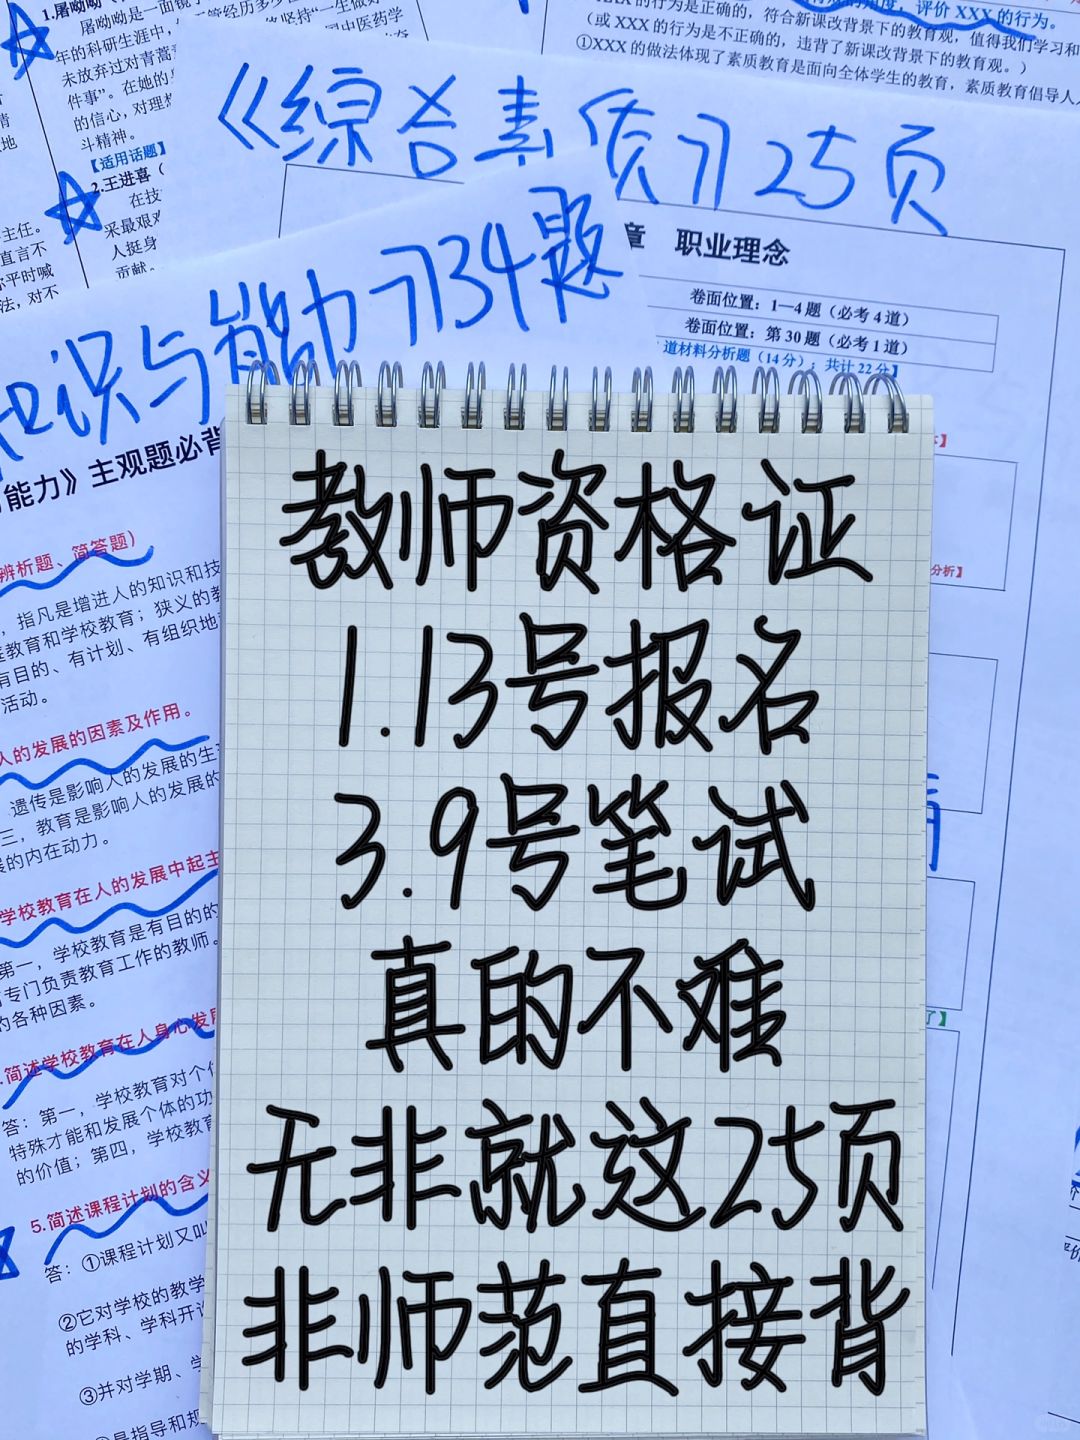 1.屠呦呦
屠呦呦是一面镜
年的科研生涯中,
未放弃过对青蒿
件事”。在她的
的信心,对理
斗精神。
【适用话题】
2.王进喜(
在技
采最艰
人挺身
贡献。
主任。
直言不
你平时喊
法,对不
评价 XXX 的行为。
XXX 的行为是正确的,符合新课改背景下的教育观,值得我们学习和
(或 XXX 的行为是不正确的,违背了新课改背景下的教育观。)
①XXX 的做法体现了素质教育是面向全体学生的教育,素质教育倡导人
《综合素质》25页
知识与能力》34题
章 职业理念
卷面位置:1—4 题(必考 4 道)
卷面位置:第 30 题(必考 1 道)
道材料分析题(14 分);共计 22 分】
能力》主观题必背
辨析题、简答题)
,指凡是增进人的知识和技
庭教育和学校教育;狭义的教
有目的、有计划、有组织地
活动。
人的发展的因素及作用。
遗传是影响人的发展的生
三,教育是影响人的发展的
展的内在动力。
学校教育在人的发展中起主
第一,学校教育是有目的的
有专门负责教育工作的教师。
的各种因素。
简述学校教育在人身心发展
答:第一,学校教育对个
特殊才能和发展个体的功
的价值;第四,学校教育
5.简述课程计划的含义
答:①课程计划又叫
②它对学校的教学
的学科、学科开设
③并对学期、学
是指导和规
分析】
教师资格证
1.13号报名
3.9号笔试
真的不难
无非就这25页
非师范直接背